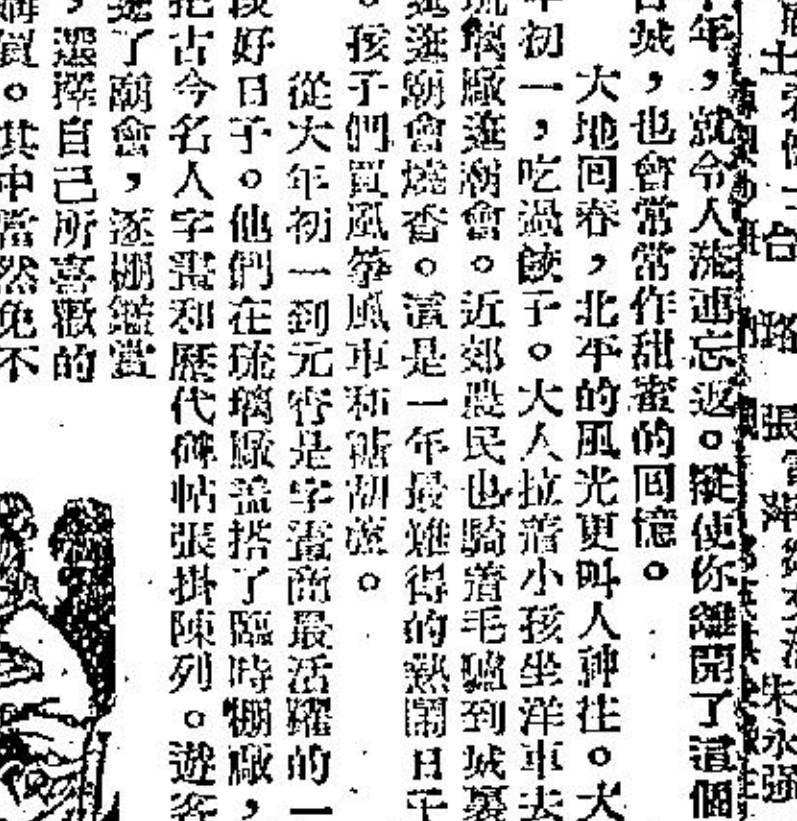 台 路 張 朱永强
年,就令人流連忘返。縱使你離開了這個
古城,也會常常作甜蜜的回憶。
大地回春,北平的風光更叫人神往。大
年初一,吃過餃子。大人拉着小孩坐洋車去
琉璃廠逛廟會。近郊農民也騎着毛驢到城裏
逛廟會燒香。這是一年最難得的熱鬧日子
。孩子們買風箏風車和糖胡蘆。
從大年初一到元宵是字畫商最活躍的一
段好日子。他們在琉璃廠蓋搭了臨時棚廠,
把古今名人字畫和歷代碑帖張掛陳列。遊客
逛了廟會,逐棚鑑賞
,選擇自己所喜歡的
購買。其中當然免不